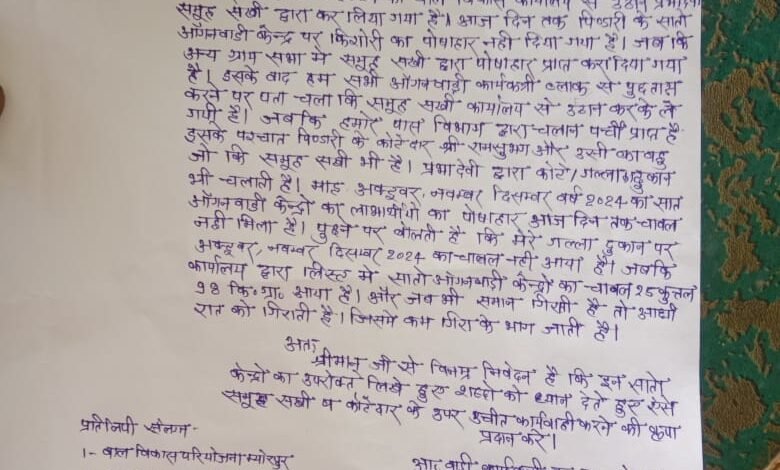 समूह सखी द्वारा कर लिया गया है। आज दिन तक पिण्डारी के सातो
आँगनवाड़ी केन्द्र पर किशोरी का पोषाहार नही दिया गया है। जब कि
अन्य ग्राम सभा मे समूह सखी द्वारा पोषाहार प्राप्त करा दिया गया
है। इसके बाद हम सभी आँगनवाड़ी कार्यकत्री ब्लाक से पुछताछ
करने पर पता चला कि समूह सखी कार्यालय से उठान करके ले
गयी है। जबकि हमारे पास विभाग द्वारा चलान पर्ची प्राप्त है
इसके पश्चात पिण्डारी के कोटेदार श्री रामसुभग और उसी का बहू
जो कि समूह सखी भी है। प्रभादेवी द्वारा कोटे। गल्ला दुकान
भी चलाती है। माह अक्टूबर, नवम्बर दिसम्बर वर्ष 2024 का सात
आँगनवाडी केन्द्रो का लाभार्थीयो का पोषाहार आज दिन तक चावल
नही मिला है। पुछने पर बोलती है कि मेरे गल्ला दुकान पर
अक्टूबर, नवम्बर दिसम्बर 2024 का चावल नही आया है। जबकि
कार्यालय द्वारा लिस्ट मे सातो आँगनवाड़ी केन्द्रो का चावल 25 कुन्तल
98 कि॰ ग्रा॰ आया है। और जब भी समान गिरती है तो आधी
रात को गिराती है। जिसमे कम गिरा के भाग जाती है।
अतः
श्रीमान् जी से विनम्र निवेदन है कि इन सातो
केन्द्रो का उपरोक्त लिखे हुए शब्दो को ध्यान देते हुए ऐसे
समूह सखी व कोटेदार के उपर उचीत कार्यवाही करने की कृपा
प्रदान करे।
प्रतिलिपी संलग्न -
1- बाल विकास परियोजना म्योरपुर